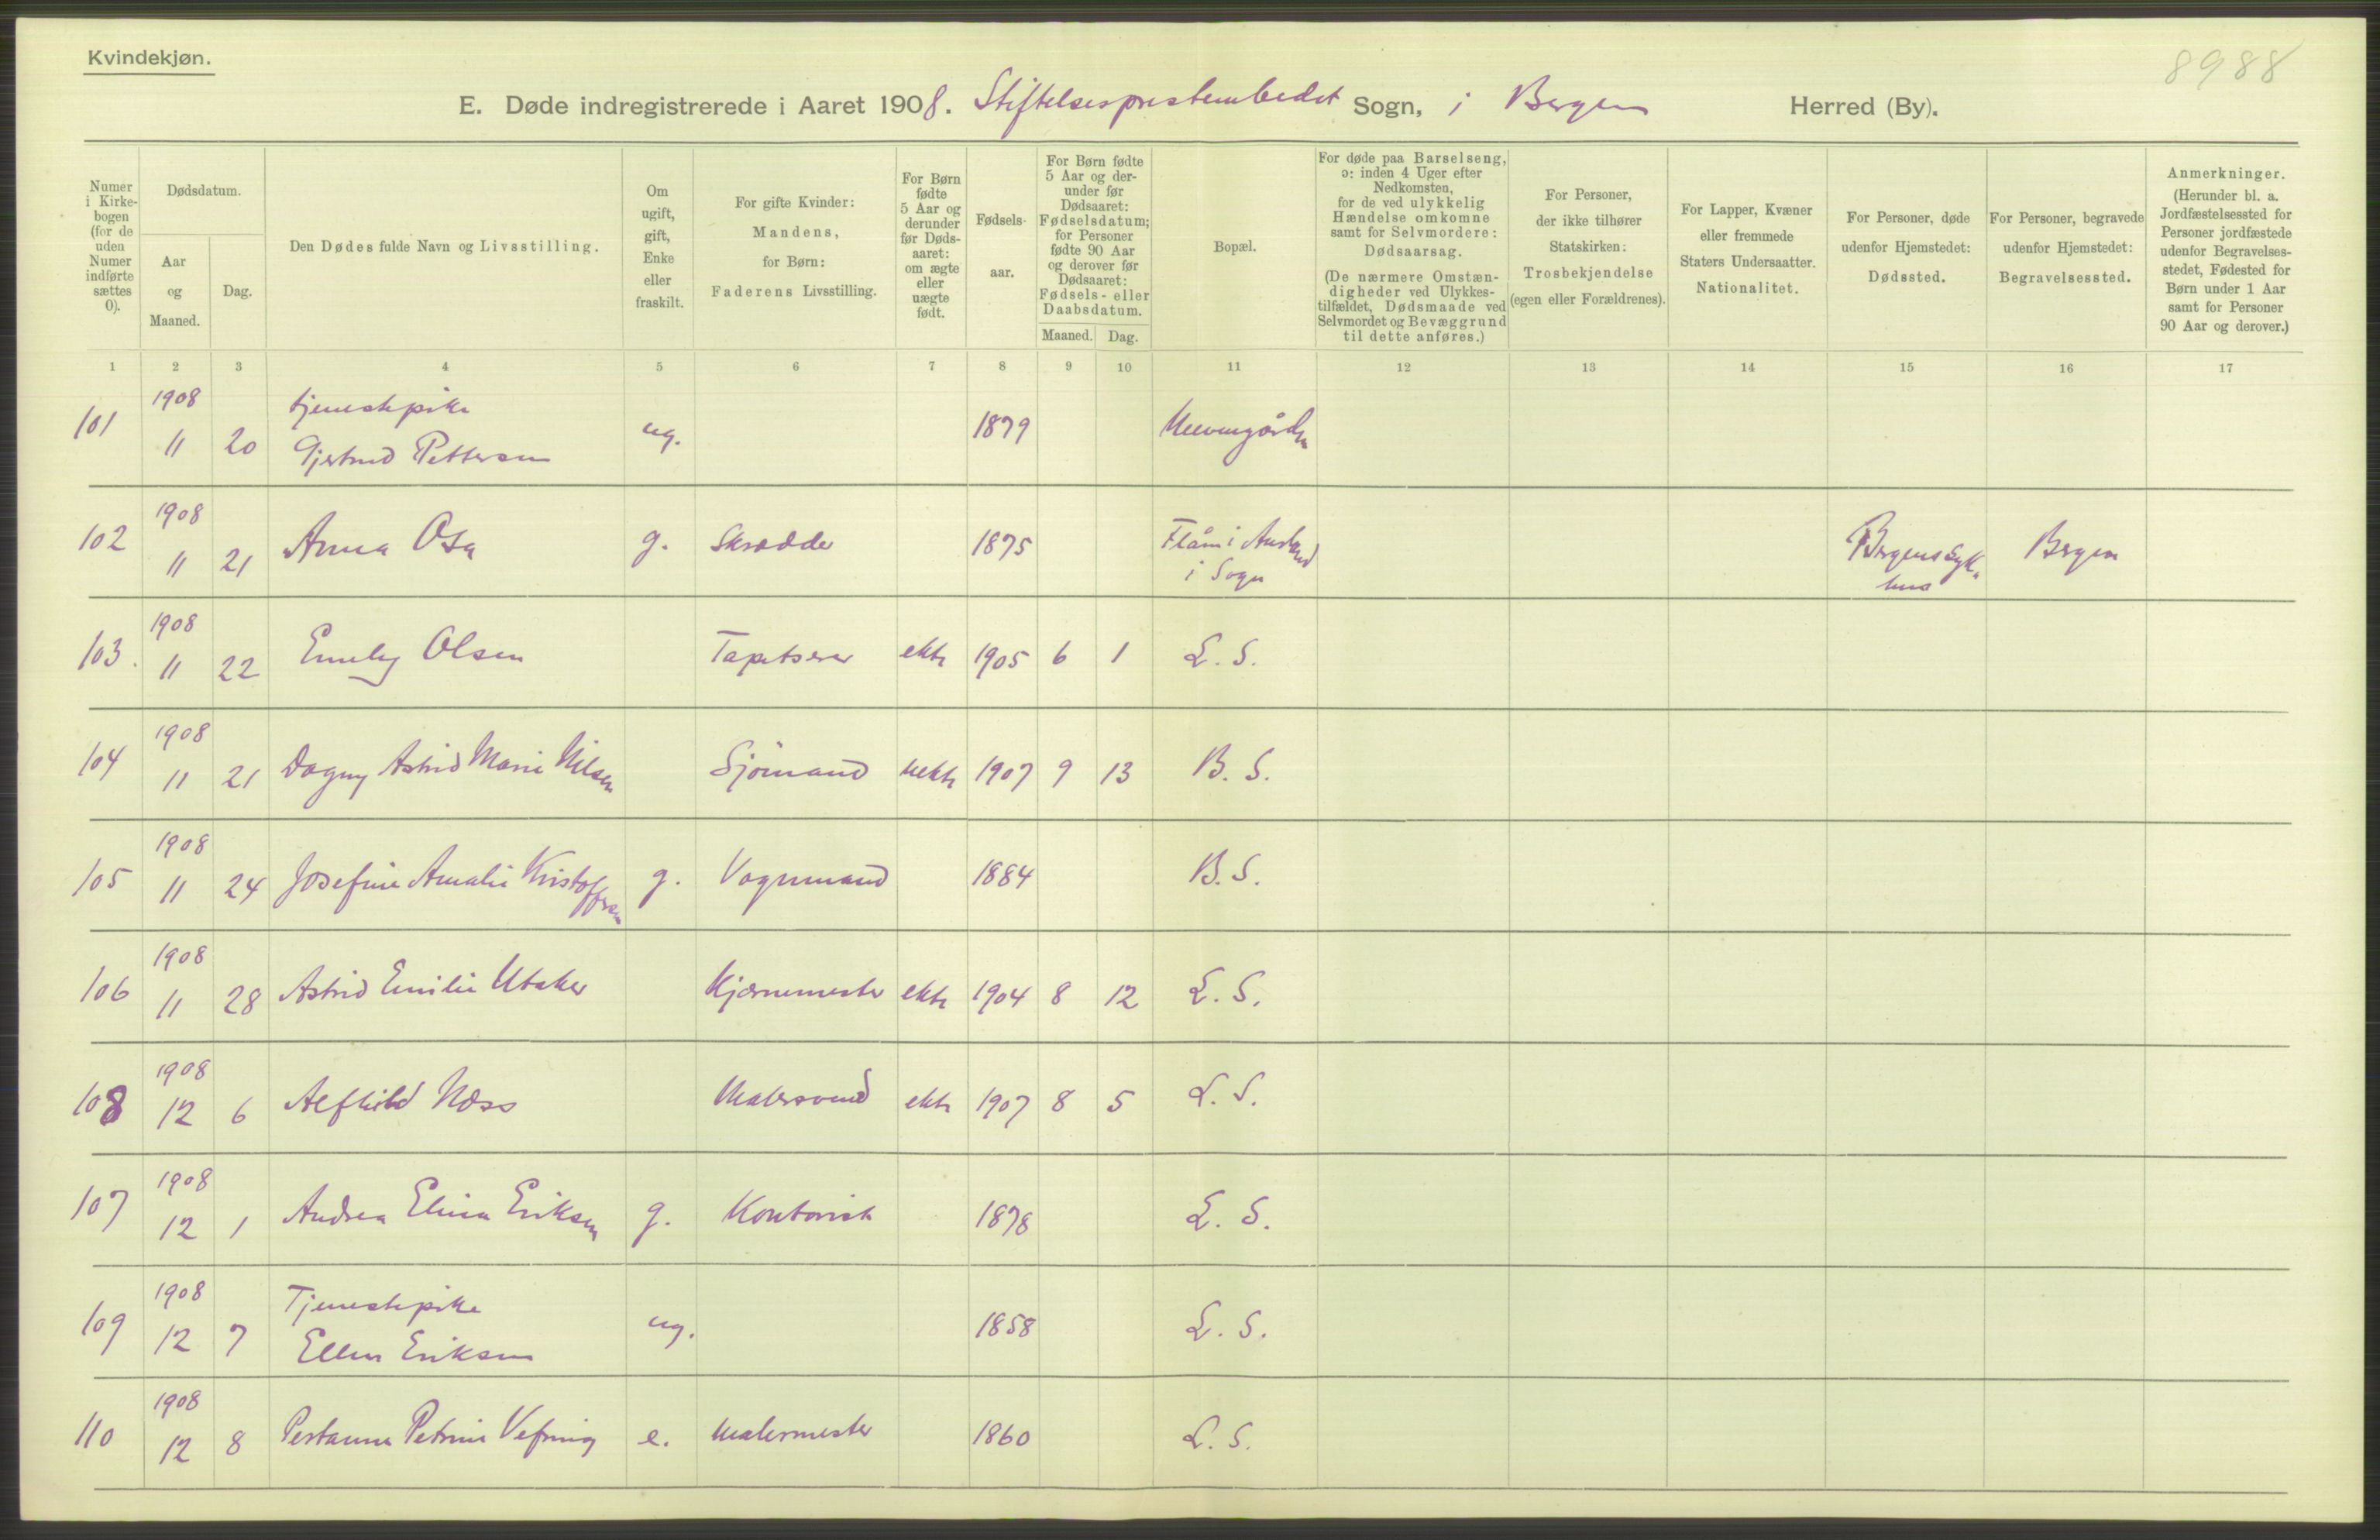 Kvindekjøn.
8988
E. Døde indregistrerede i Aaret 1908. Stiftelsesprestembedet Sogn, i Bergen Herred (By).
Numer i Kirke-bogen (for de uden Numer indførte sættes 0).
Dødsdatum.
Aar og Maaned.
Dag.
Den Dødes fulde Navn og Livsstilling.
Om ugift, gift, Enke eller fraskilt.
For gifte Kvinder: Mandens, for Børn: Faderens Livsstilling.
For Børn fødte 5 Aar og derunder før Døds-aaret: om ægte eller uægte født.
Fødsels-aar.
For Børn fødte 5 Aar og der-under før Dødsaaret: Fødselsdatum; for Personer fødte 90 Aar og derover før Dødsaaret: Fødsels- eller Daabsdatum.
Maaned. Dag.
Bopæl.
For døde paa Barselseng, ɔ: inden 4 Uger efter Nedkomsten, for de ved ulykkelig Hændelse omkomne samt for Selvmordere: Dødsaarsag. (De nærmere Omstæn-digheder ved Ulykkes-tilfældet, Dødsmaade ved Selvmordet og Bevæggrund til dette anføres.)
For Personer, der ikke tilhører Statskirken: Trosbekjendelse (egen eller Forældrenes).
For Lapper, Kvæner eller fremmede Staters Undersaatter. Nationalitet.
For Personer, døde udenfor Hjemstedet: Dødssted.
For Personer, begravede udenfor Hjemstedet: Begravelsessted.
Anmerkninger. (Herunder bl. a. Jordfæstelsessted for Personer jordfæstede udenfor Begravelses-stedet, Fødested for Børn under 1 Aar samt for Personer 90 Aar og derover.)
1 2 3 4 5 6 7 8 9 10 11 12 13 14 15 16 17
101 1908 11 20 tjenestepike Gjertrud Pettersen ug. 1879
102 1908 11 21 Anna Osa g. Skrædder 1875 Flåm i Aurland i Sogn Bergens Syk-hus Bergen
103. 1908 11 22 Emily Olsen Tapetserer ekte 1905 6 1 L. S.
104 1908 11 21 Dagny Astrid Marie Nilsen Sjömand uekte 1907 9 13 B. S.
105 1908 11 24 Josefine Amalie Kristoffersen g. Vognmand 1884 B. S.
106 1908 11 28 Astrid Emilie Utaker Kjærnemester ekte 1904 8 12 L. S.
108 1908 12 6 Alfhild Næss Malersvend ekte 1907 8 5 L. S.
107 1908 12 1 Andrea Elina Eriksen g. Kontorist 1878 L. S.
109 1908 12 7 Tjenestepike Ellen Eriksen ug. 1858 L. S.
110 1908 12 8 Petrine Vefring e. Malermester 1860 L. S.